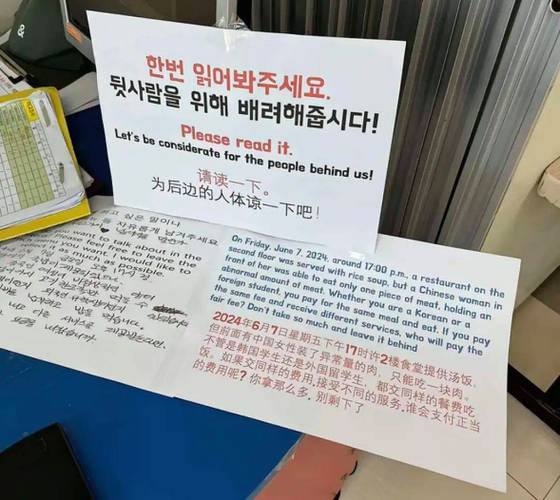 한번 읽어봐주세요.
뒷사람을 위해 배려해줍시다!
Please read it.
Let's be considerate for the people behind us!
请读一下。
为后边的人体谅一下吧!
고 싶은 말이나
자유롭게 남겨주세요
want to talk about in the
please feel free to leave the
you want I would like to
as much as possible.
On Friday, June 7, 2024, around 17:00 p.m., a restaurant on the
second floor was served with rice soup, but a Chinese woman in
front of her was able to eat only one piece of meat, holding an
abnormal amount of meat. Whether you are a Korean or a
foreign student, you pay for the same meal and eat. If you pay
the same fee and receive different services, who will pay the
fair fee? Don't take so much and leave it behind
2024年6月7日星期五下午17时许2楼食堂提供汤饭,
但前面有中国女性装了异常量的肉，只能吃一块肉。
不管是韩国学生还是外国留学生，都交同样的餐费吃
饭。如果交同样的费用,接受不同的服务,谁会支付正当
的费用呢? 你拿那么多. 别剩下了